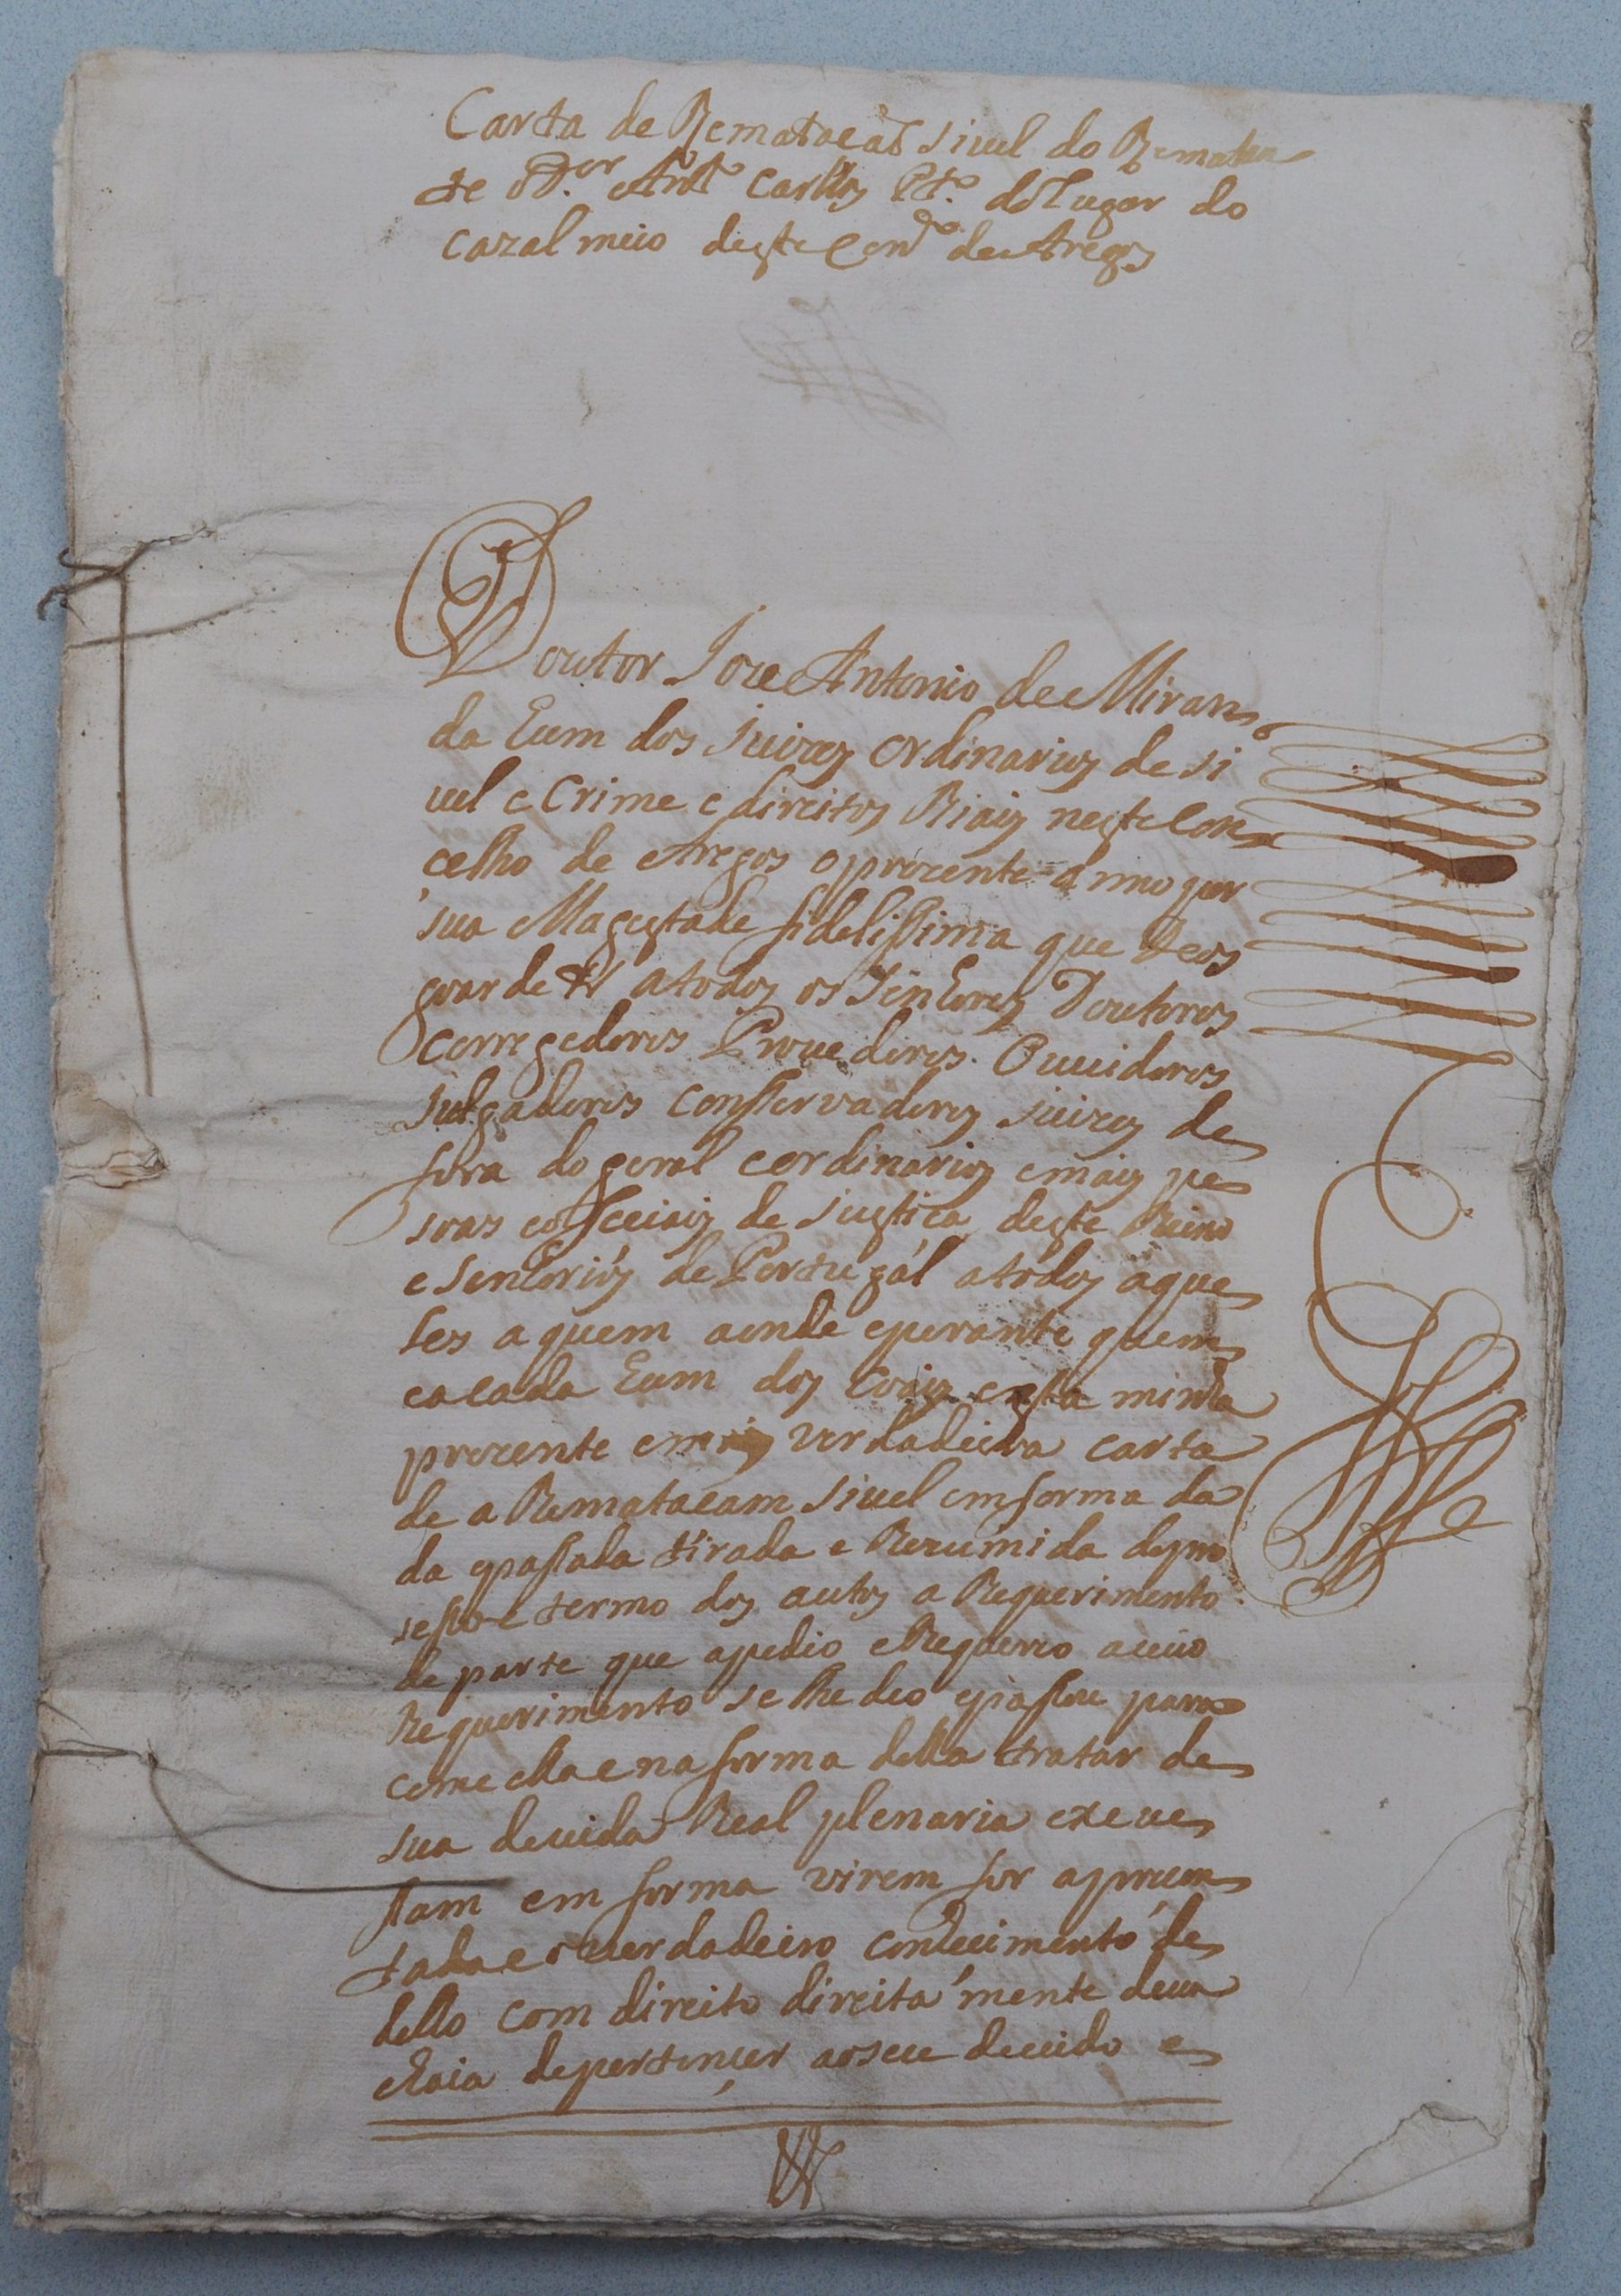 Carta de Rematacaõ sivel do Rematan
te o D.or Ant.o Carlos P.to do Lugar do
cazal meio deste Con.do de Aregos
Doutor Joze Antonio de Miran
da Eum dos juizes ordinarios de si
uel e Crime e direitos Riais neste Con
celho de Aregos o prezente anno por
sua Magestade fidelissima que Deos
goarde &.a a todos os Senhores Doutores
Corregedores Prouedores Ouuidores
Julgadores Conservadores juizes de
fora do geral e ordinarios e mais pe
soas e ofeciais de justica deste Reino
e senhorios de Portugal a todos aque
les a quem aonde e perante quem
e a cada Eum dos coais esta minha
prezente e mais verdadeira carta
de a Rematacam sivel em forma da
da e passada tirada e Rezumida do pro
sesso e termo dos autos a Requerimento
de parte que a pedio e Requereo a cuio
Requerimento se lhe deo e passou para
com ella e na forma della tratar de
sua deuida Real plenaria execu
sam em forma virem for aprezen
tada e o verdadeiro conhecimento de
dello com direito direitamente deua
e haia de pertencer ao seu deuido e